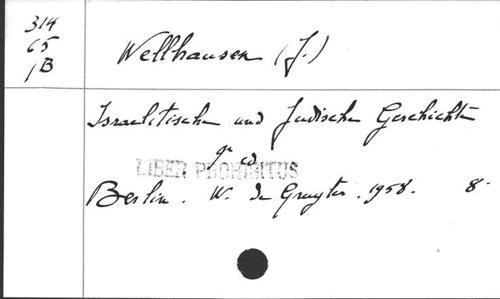 314
65
1B
Wellhausen (J.)
Israelitische und Judische Geschichte
9e ed
LIBER PROHIBITUS
Berlin. W. de Gruyter. 1958. 8-